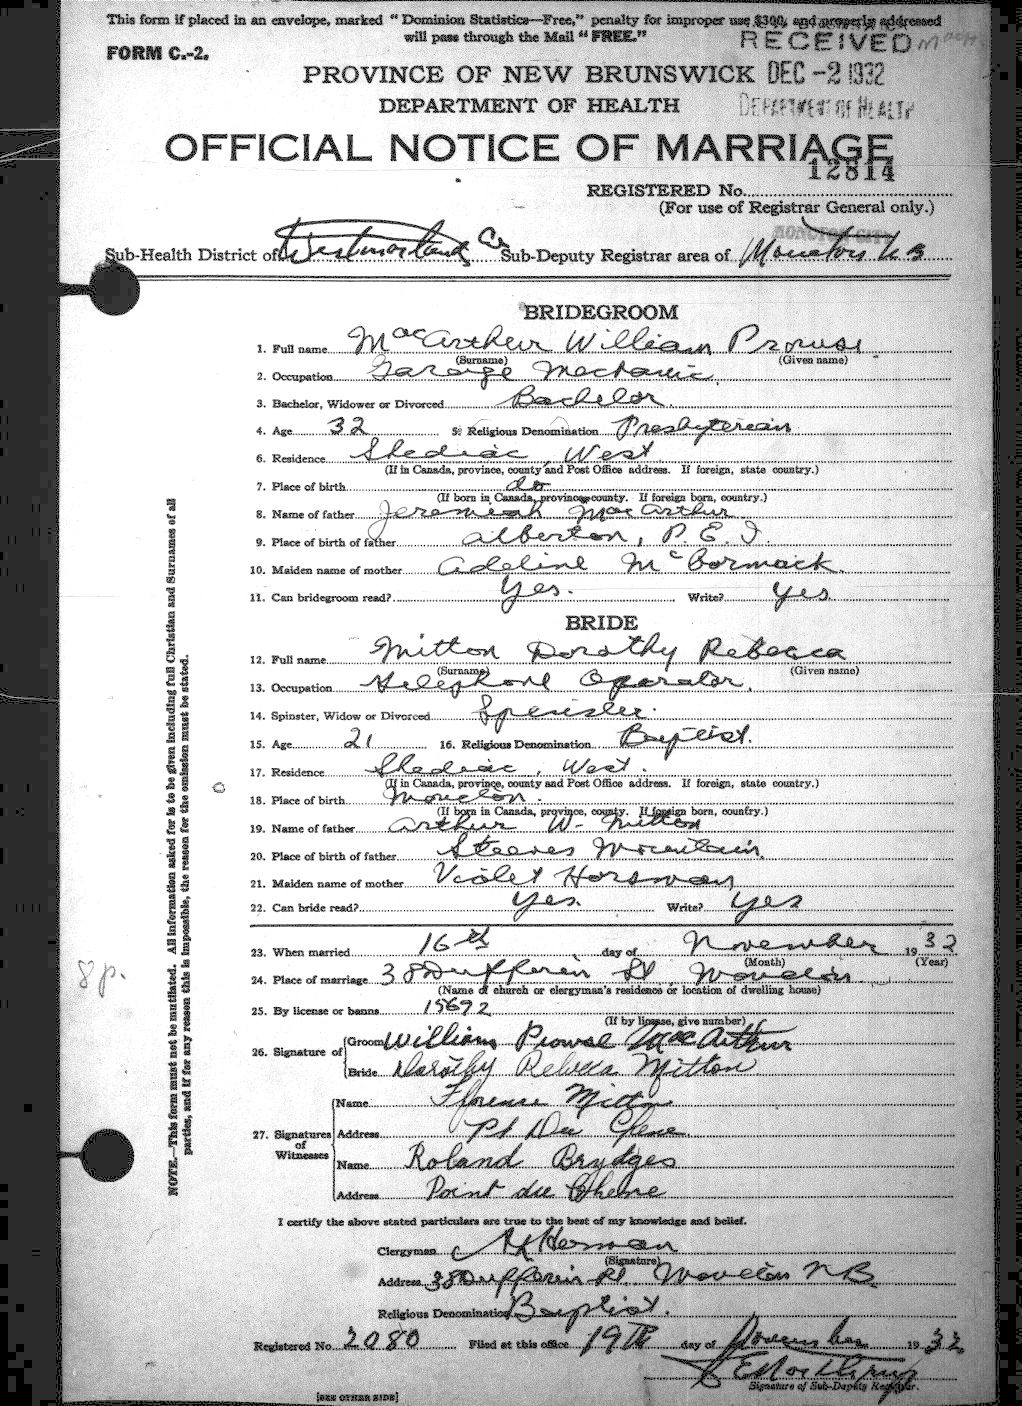 This form if placed in an envelope, marked "Dominion Statistics—Free," penalty for improper use $300, and properly addressed
will pass through the Mail "FREE."
FORM C.-2.
RECEIVED
PROVINCE OF NEW BRUNSWICK DEC -2 1932
DEPARTMENT OF HEALTH DEPARTMENT OF HEALTH
OFFICIAL NOTICE OF MARRIAGE
12814
REGISTERED No.
(For use of Registrar General only.)
MONCTON CITY
Sub-Health District of Westmorland Co Sub-Deputy Registrar area of Moncton N B
BRIDEGROOM
1. Full name MacArthur William Prowse
(Surname) (Given name)
2. Occupation Garage Mechanic
3. Bachelor, Widower or Divorced Bachelor
4. Age 32 5. Religious Denomination Presbyterian
6. Residence Shediac West
(If in Canada, province, county and Post Office address. If foreign, state country.)
7. Place of birth do
(If born in Canada, province, county. If foreign born, country.)
8. Name of father Jeremiah MacArthur
9. Place of birth of father Alberton, P. E. I.
10. Maiden name of mother Adeline McCormack.
11. Can bridegroom read? Yes. Write? Yes
BRIDE
12. Full name Mitton Dorothy Rebecca
(Surname) (Given name)
13. Occupation Telephone Operator.
14. Spinster, Widow or Divorced Spinster.
15. Age 21 16. Religious Denomination Baptist.
17. Residence Shediac, West.
(If in Canada, province, county and Post Office address. If foreign, state country.)
18. Place of birth Moncton.
(If born in Canada, province, county. If foreign born, country.)
19. Name of father Arthur W. Mitton
20. Place of birth of father Steeves Mountain.
21. Maiden name of mother Violet Horsman
22. Can bride read? Yes. Write? Yes
23. When married 16th day of November 1932
(Month) (Year)
24. Place of marriage 38 Dufferin St Moncton.
(Name of church or clergyman's residence or location of dwelling house)
25. By license or banns 15692
(If by license, give number)
26. Signature of Groom William Prowse MacArthur
Bride Dorothy Rebecca Mitton
27. Signatures of Witnesses
Name Florence Mitton
Address Pt Du Chene
Name Roland Brydges
Address Point du Chene
I certify the above stated particulars are true to the best of my knowledge and belief.
Clergyman Herman
(Signature)
Address 38 Dufferin St. Moncton N B
Religious Denomination Baptist.
Registered No. 2080 Filed at this office 19th day of November 1932
Signature of Sub-Deputy Registrar.
[SEE OTHER SIDE]
NOTE.—This form must not be mutilated. All information asked for is to be given including full Christian and Surnames of all
parties, and if for any reason this is impossible, the reason for the omission must be stated.
8p.